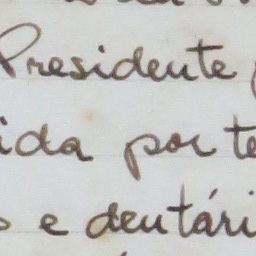 Presidente
ida por te
o e dentári